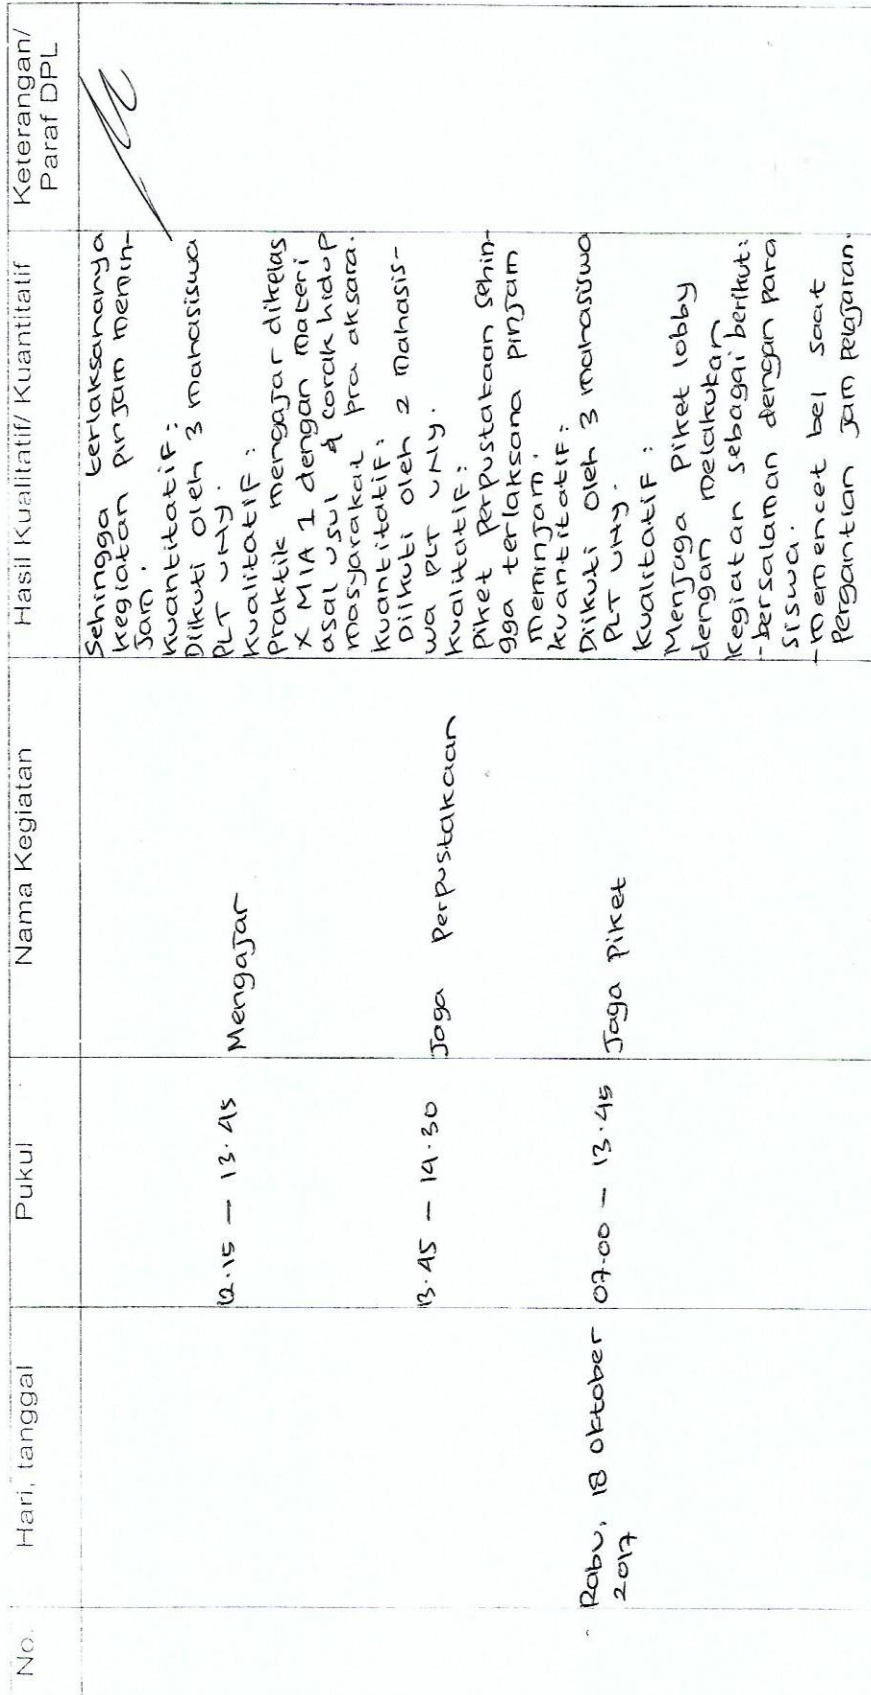 No. Hari, tanggal Pukul Nama Kegiatan Hasil Kualitatif/ Kuantitatif Keterangan/
Paraf DPL
Sehingga terlaksananya
kegiatan pinjam memin-
jam.
Kuantitatif:
Diikuti oleh 3 mahasiswa
PLT UNY.
12.15 – 13.45 Mengajar Kualitatif:
Praktik mengajar dikelas
X MIA 1 dengan materi
asal usul & corak hidup
masyarakat pra aksara.
Kuantitatif:
Diikuti oleh 2 mahasis-
wa PLT UNY.
13.45 – 14.30 Jaga Perpustakaan Kualitatif:
Piket perpustakaan sehin-
gga terlaksana pinjam
meminjam.
Kuantitatif:
Diikuti oleh 3 mahasiswa
PLT UNY.
Rabu, 18 Oktober 07.00 – 13.45 Jaga Piket Kualitatif:
2017 Menjaga piket lobby
dengan melakukan
kegiatan sebagai berikut:
- bersalaman dengan para
siswa.
- memencet bel saat
pergantian jam pelajaran.